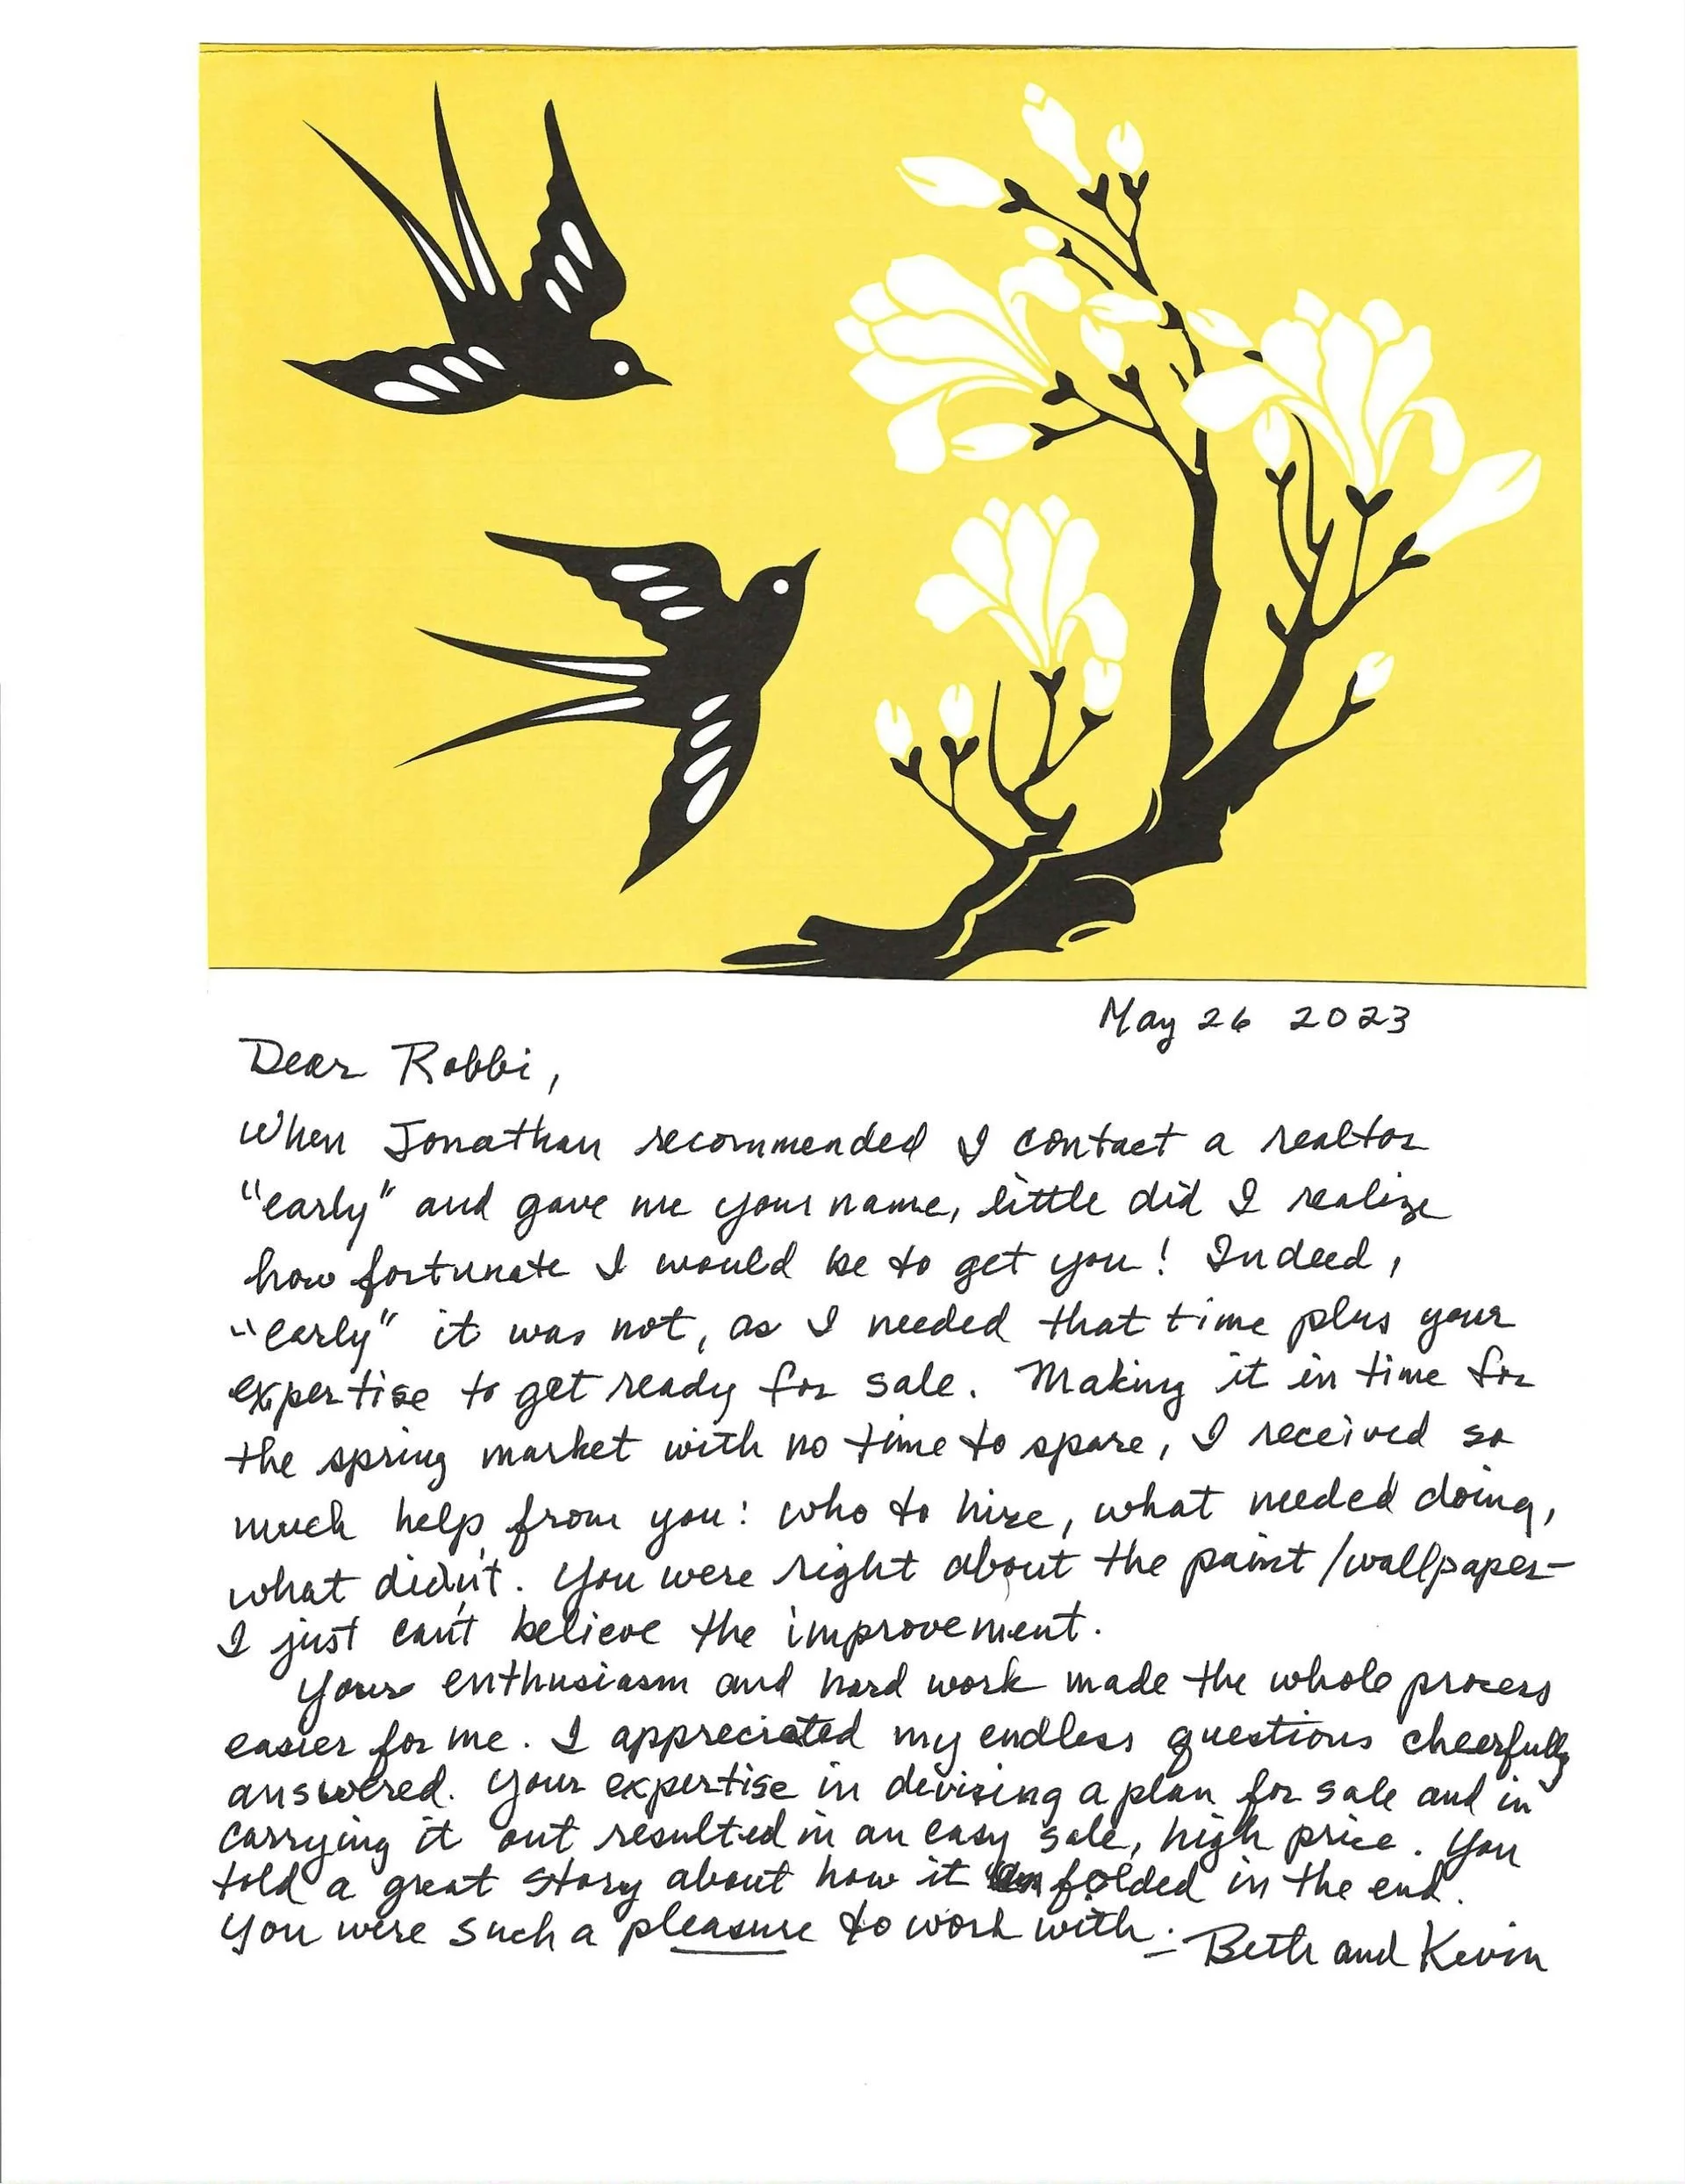 May 26 2023
Dear Robbi,
When Jonathan recommended I contact a realtor
"early" and gave me your name, little did I realize
how fortunate I would be to get you! Indeed,
"early" it was not, as I needed that time plus your
expertise to get ready for sale. Making it in time for
the spring market with no time to spare, I received so
much help from you: who to hire, what needed doing,
what didn't. You were right about the paint/wallpaper-
I just can't believe the improvement.
Your enthusiasm and hard work made the whole process
easier for me. I appreciated my endless questions cheerfully
answered. Your expertise in devising a plan for sale and in
carrying it out resulted in an easy sale, high price. You
told a great story about how it unfolded in the end.
You were such a pleasure to work with. - Beth and Kevin